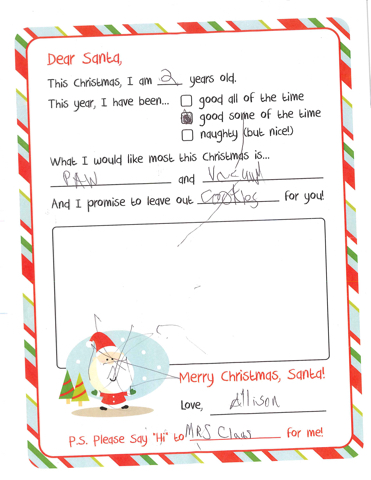 Dear Santa,
This Christmas, I am 2 years old.
This year, I have been... good all of the time
good some of the time
naughty (but nice!)
What I would like most this Christmas is...
PAW and Vacuum
And I promise to leave out cookies for you!
Merry Christmas, Santa!
Love, Allison
P.S. Please Say "Hi" to MRS Claus for me!